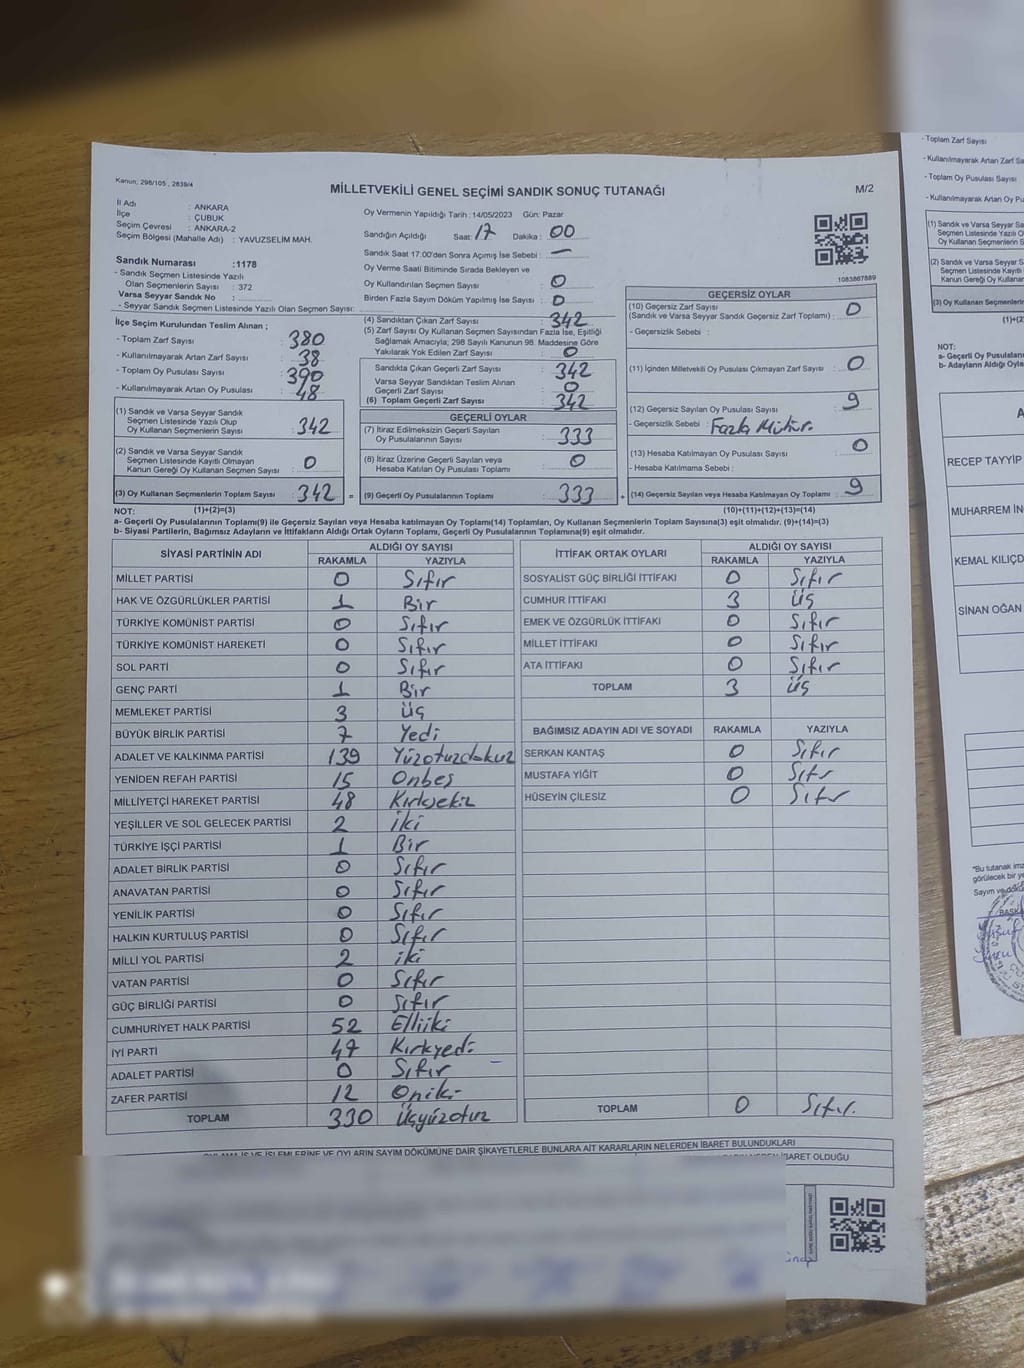 Kanun; 298/105 , 2839/4
MİLLETVEKİLİ GENEL SEÇİMİ SANDIK SONUÇ TUTANAĞI
M/2
İl Adı : ANKARA
İlçe : ÇUBUK
Seçim Çevresi : ANKARA-2
Seçim Bölgesi (Mahalle Adı) : YAVUZSELİM MAH.
Sandık Numarası :1178
- Sandık Seçmen Listesinde Yazılı
Olan Seçmenlerin Sayısı : 372
Varsa Seyyar Sandık No :
- Seyyar Sandık Seçmen Listesinde Yazılı Olan Seçmen Sayısı:
İlçe Seçim Kurulundan Teslim Alınan ;
- Toplam Zarf Sayısı : 380
- Kullanılmayarak Artan Zarf Sayısı : 38
- Toplam Oy Pusulası Sayısı : 390
- Kullanılmayarak Artan Oy Pusulası : 48
(1) Sandık ve Varsa Seyyar Sandık
Seçmen Listesinde Yazılı Olup
Oy Kullanan Seçmenlerin Sayısı : 342
(2) Sandık ve Varsa Seyyar Sandık
Seçmen Listesinde Kayıtlı Olmayan
Kanun Gereği Oy Kullanan Seçmen Sayısı : 0
(3) Oy Kullanan Seçmenlerin Toplam Sayısı : 342 =
Oy Vermenin Yapıldığı Tarih : 14/05/2023 Gün: Pazar
Sandığın Açıldığı Saat: 17 Dakika : 00
Sandık Saat 17.00'den Sonra Açımış İse Sebebi : —
Oy Verme Saati Bitiminde Sırada Bekleyen ve
Oy Kullandırılan Seçmen Sayısı : 0
Birden Fazla Sayım Döküm Yapılmış İse Sayısı : 0
(4) Sandıktan Çıkan Zarf Sayısı : 342
(5) Zarf Sayısı Oy Kullanan Seçmen Sayısından Fazla İse, Eşitliği
Sağlamak Amacıyla; 298 Sayılı Kanunun 98. Maddesine Göre
Yakılarak Yok Edilen Zarf Sayısı : 0
Sandıkta Çıkan Geçerli Zarf Sayısı : 342
Varsa Seyyar Sandıktan Teslim Alınan
Geçerli Zarf Sayısı : 0
(6) Toplam Geçerli Zarf Sayısı : 342
GEÇERLİ OYLAR
(7) İtiraz Edilmeksizin Geçerli Sayılan
Oy Pusulalarının Sayısı : 333
(8) İtiraz Üzerine Geçerli Sayılan veya
Hesaba Katılan Oy Pusulası Toplamı : 0
(9) Geçerli Oy Pusulalarının Toplamı : 333 +
1083867889
GEÇERSİZ OYLAR
(10) Geçersiz Zarf Sayısı
(Sandık ve Varsa Seyyar Sandık Geçersiz Zarf Toplamı) : 0
- Geçersizlik Sebebi :
(11) İçinden Milletvekili Oy Pusulası Çıkmayan Zarf Sayısı : 0
(12) Geçersiz Sayılan Oy Pusulası Sayısı : 9
- Geçersizlik Sebebi : Fazla Mühür.
(13) Hesaba Katılmayan Oy Pusulası Sayısı : 0
- Hesaba Katılmama Sebebi :
(14) Geçersiz Sayılan veya Hesaba Katılmayan Oy Toplamı : 9
NOT: (1)+(2)=(3) (10)+(11)+(12)+(13)=(14)
a- Geçerli Oy Pusulalarının Toplamı(9) ile Geçersiz Sayılan veya Hesaba katılmayan Oy Toplamı(14) Toplamları, Oy Kullanan Seçmenlerin Toplam Sayısına(3) eşit olmalıdır. (9)+(14)=(3)
b- Siyasi Partilerin, Bağımsız Adayların ve İttifakların Aldığı Ortak Oyların Toplamı, Geçerli Oy Pusulalarının Toplamına(9) eşit olmalıdır.
SİYASİ PARTİNİN ADI ALDIĞI OY SAYISI
RAKAMLA YAZIYLA
MİLLET PARTİSİ 0 Sıfır
HAK VE ÖZGÜRLÜKLER PARTİSİ 1 Bir
TÜRKİYE KOMÜNİST PARTİSİ 0 Sıfır
TÜRKİYE KOMÜNİST HAREKETİ 0 Sıfır
SOL PARTİ 0 Sıfır
GENÇ PARTİ 1 Bir
MEMLEKET PARTİSİ 3 Üç
BÜYÜK BİRLİK PARTİSİ 7 Yedi
ADALET VE KALKINMA PARTİSİ 139 Yüzotuzdokuz
YENİDEN REFAH PARTİSİ 15 Onbeş
MİLLİYETÇİ HAREKET PARTİSİ 48 Kırksekiz
YEŞİLLER VE SOL GELECEK PARTİSİ 2 İki
TÜRKİYE İŞÇİ PARTİSİ 1 Bir
ADALET BİRLİK PARTİSİ 0 Sıfır
ANAVATAN PARTİSİ 0 Sıfır
YENİLİK PARTİSİ 0 Sıfır
HALKIN KURTULUŞ PARTİSİ 0 Sıfır
MİLLİ YOL PARTİSİ 2 iki
VATAN PARTİSİ 0 Sıfır
GÜÇ BİRLİĞİ PARTİSİ 0 Sıfır
CUMHURİYET HALK PARTİSİ 52 Elliiki
İYİ PARTİ 47 Kırkyedi
ADALET PARTİSİ 0 Sıfır
ZAFER PARTİSİ 12 Oniki
TOPLAM 330 Üçyüzotuz
İTTİFAK ORTAK OYLARI ALDIĞI OY SAYISI
RAKAMLA YAZIYLA
SOSYALİST GÜÇ BİRLİĞİ İTTİFAKI 0 Sıfır
CUMHUR İTTİFAKI 3 Üç
EMEK VE ÖZGÜRLÜK İTTİFAKI 0 Sıfır
MİLLET İTTİFAKI 0 Sıfır
ATA İTTİFAKI 0 Sıfır
TOPLAM 3 Üç
BAĞIMSIZ ADAYIN ADI VE SOYADI RAKAMLA YAZIYLA
SERKAN KANTAŞ 0 Sıfır
MUSTAFA YİĞİT 0 Sıfır
HÜSEYİN ÇİLESİZ 0 Sıfır
TOPLAM 0 Sıfır.
OYLAMA İŞ VE İŞLEMLERİNE VE OYLARIN SAYIM DÖKÜMÜNE DAİR ŞİKAYETLERLE BUNLARA AİT KARARLARIN NELERDEN İBARET BULUNDUKLARI
İBARET OLDUĞU
- Toplam Zarf Sayısı
- Kullanılmayarak Artan Zarf Sa
- Toplam Oy Pusulası Sayısı
- Kullanılmayarak Artan Oy Pu
(1) Sandık ve Varsa Seyyar Sandık
Seçmen Listesinde Yazılı O
Oy Kullanan Seçmenlerin
(2) Sandık ve Varsa Seyyar Sandık
Seçmen Listesinde Kayıtlı
Kanun Gereği Oy Kullanan
(3) Oy Kullanan Seçmenlerin
(1)+(2
NOT:
a- Geçerli Oy Pusulaları
b- Adayların Aldığı Oy
A
RECEP TAYYİP
MUHARREM İN
KEMAL KILIÇD
SİNAN OĞAN
"Bu tutanak imz
görülecek bir ye
Sayım ve dökü
BAŞK